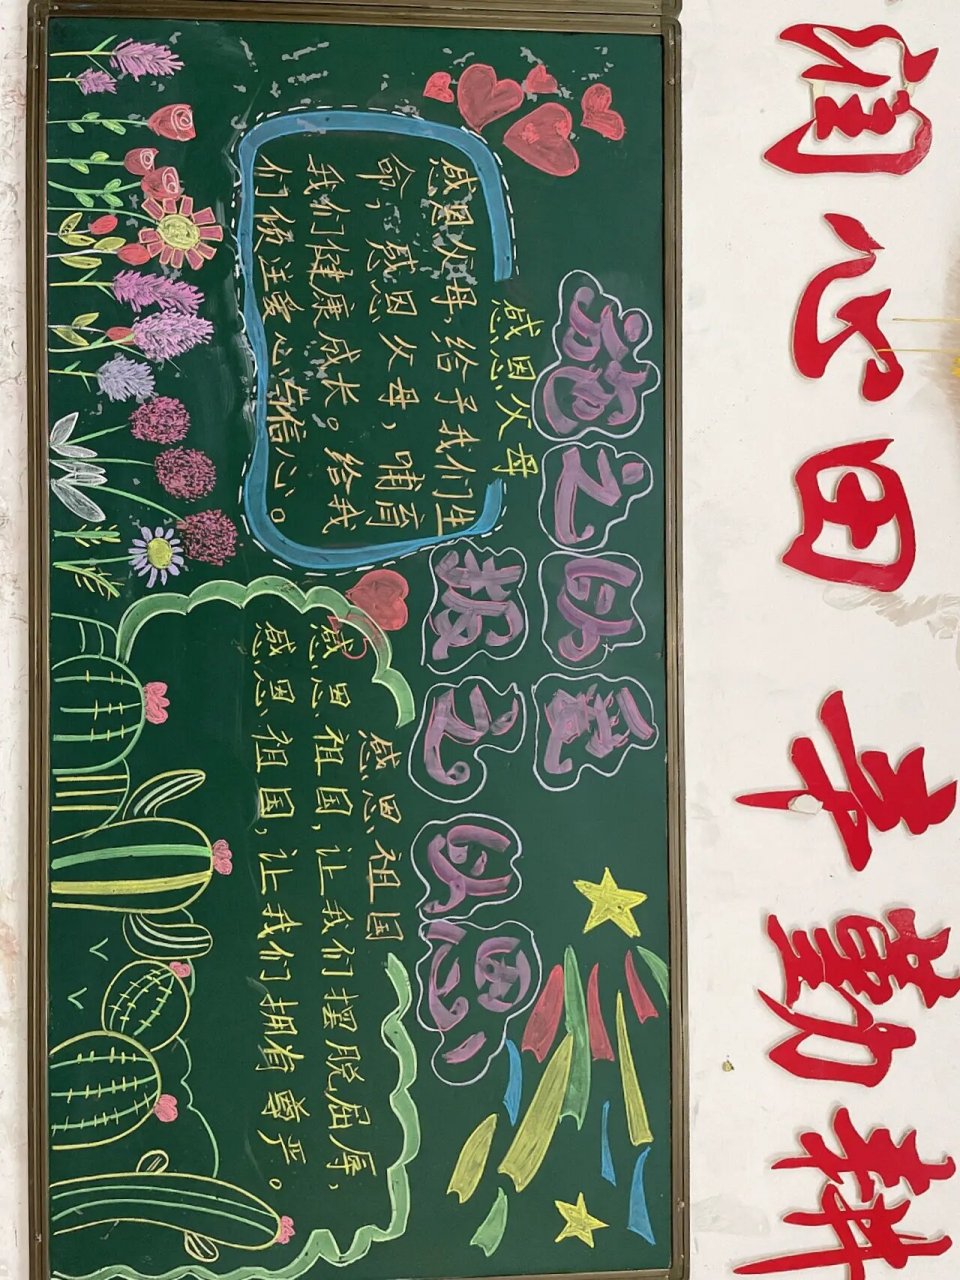 润心田 辛勤耕
施之以爱
报之以恩
感恩父母
感恩父母,给予我们生
命,感恩父母,哺育
我们健康成长。给我
们倾注爱心与信心。
感恩祖国
感恩祖国,让我们摆脱屈辱,
感恩祖国,让我们拥有尊严。